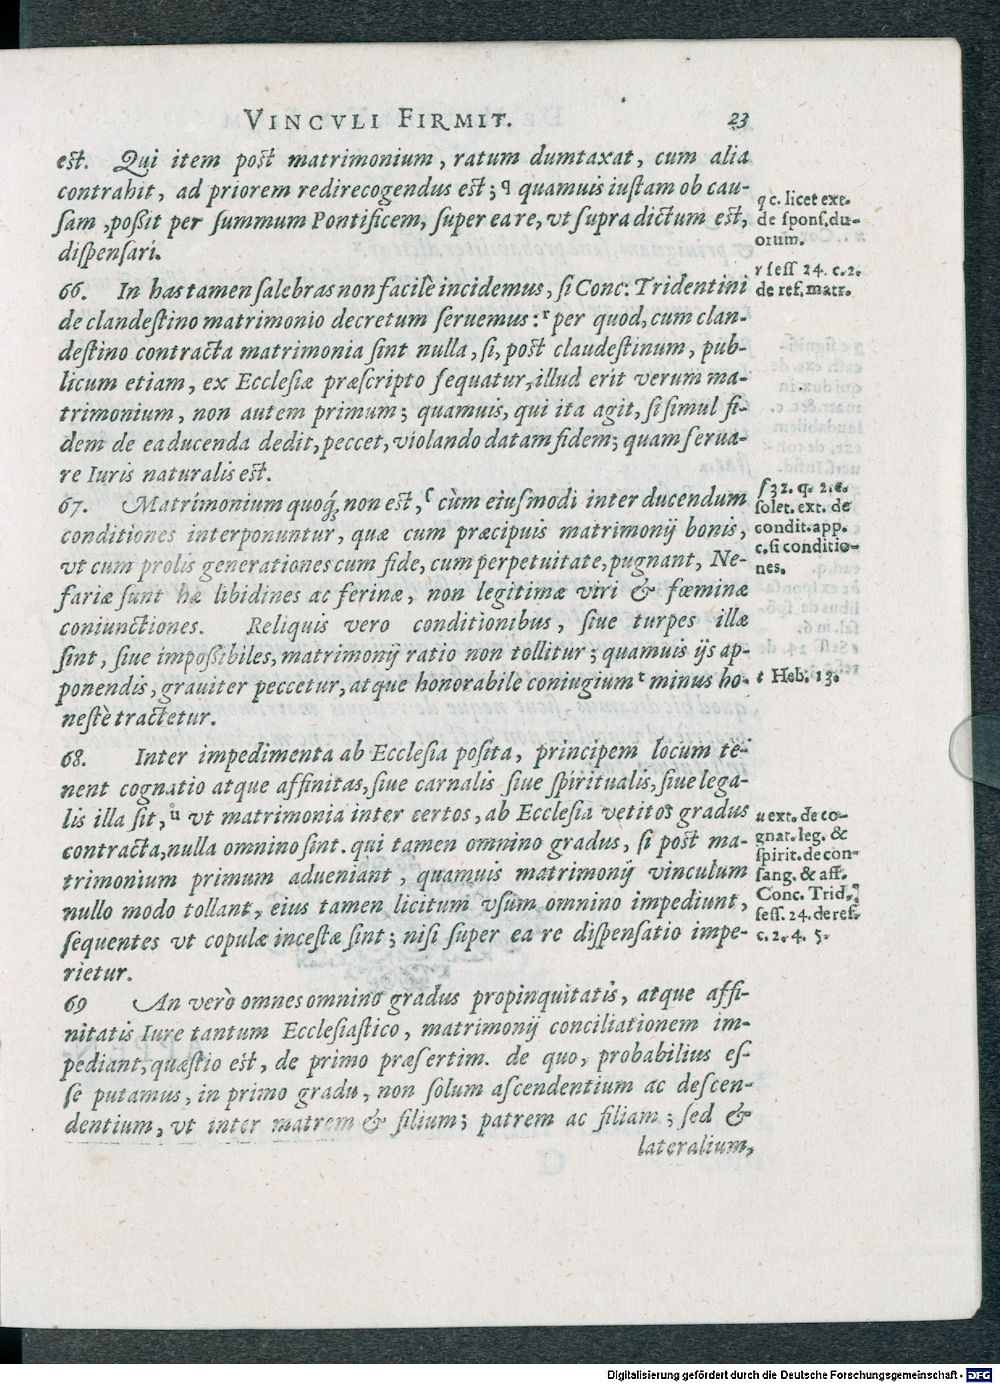 VINCVLI FIRMIT. 23
est. Qui item post matrimonium, ratum dumtaxat, cum alia
contrahit, ad priorem redirecogendus est; q quamuis iustam ob cau-
sam, possit per summum Pontificem, super eare, vt supra dictum est,
dispensari.
66. In has tamen salebras non facilè incidemus, si Conc: Tridentini
de clandestino matrimonio decretum seruemus: r per quod, cum clan-
destino contracta matrimonia sint nulla, si, post claudestinum, pub-
licum etiam, ex Ecclesiæ præscripto sequatur, illud erit verum ma-
trimonium, non autem primum; quamuis, qui ita agit, si simul fi-
dem de eaducenda dedit, peccet, violando datam fidem; quam serua-
re Iuris naturalis est.
67. Matrimonium quoq́; non est, ſ cùm eiusmodi inter ducendum
conditiones interponuntur, quæ cum præcipuis matrimonij bonis,
vt cum prolis generationes cum fide, cum perpetuitate, pugnant, Ne-
fariæ sunt hæ libidines ac ferinæ, non legitimæ viri & fœminæ
coniunctiones. Reliquis vero conditionibus, siue turpes illæ
sint, siue impossibiles, matrimonij ratio non tollitur; quamuis ijs ap-
ponendis, grauiter peccetur, atque honorabile coniugium t minus ho-
nestè tractetur.
68. Inter impedimenta ab Ecclesia posita, principem locum te-
nent cognatio atque affinitas, siue carnalis siue spiritualis, siue lega-
lis illa sit, u vt matrimonia inter certos, ab Ecclesia vetitos gradus
contracta, nulla omnino sint. qui tamen omnino gradus, si post ma-
trimonium primum adueniant, quamuis matrimonij vinculum
nullo modo tollant, eius tamen licitum vsum omnino impediunt,
sequentes vt copulæ incestæ sint; nisi super ea re dispensatio impe-
rietur.
69 An verò omnes omnino gradus propinquitatis, atque affi-
nitatis Iure tantum Ecclesiastico, matrimonij conciliationem im-
pediant, quæstio est, de primo præsertim. de quo, probabilius es-
se putamus, in primo gradu, non solum ascendentium ac descen-
dentium, vt inter matrem & filium; patrem ac filiam; sed &
lateralium,
q c. licet ext.
de spons. du-
orum.
r sess 24. c. 2.
de ref. matr.
ſ 32. q. 2. c.
solet. ext. de
condit. app.
c. si conditio-
nes.
t Heb. 13.
u ext. de co-
gnat. leg. &
spirit. de con-
sang. & aff.
Conc. Trid.
sess. 24. de ref.
c. 2. 4. 5.
Digitalisierung gefördert durch die Deutsche Forschungsgemeinschaft - DFG